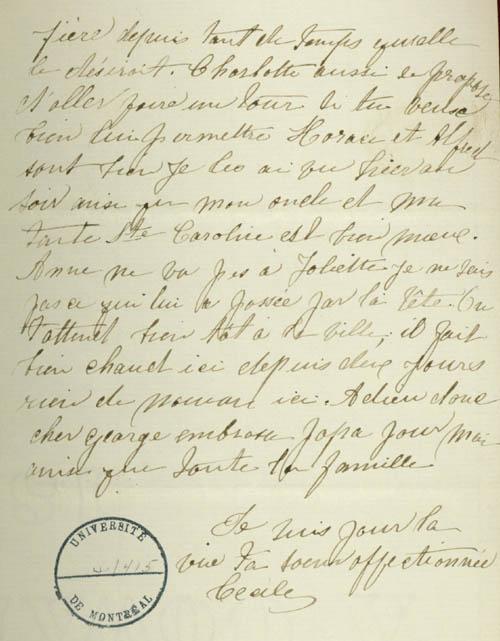 fière depuis tant de temps qu'elle
le désirait. Charlotte aussi se propose
d'aller faire un tour si tu veux
bien lui permettre Horace et Alfred
sont bien je les ai vu hier au
soir ainsi que mon oncle et ma
tante Ste Caroline est bien mieux.
Anne ne va pas à Joliette je ne sais
pas ce qui lui a passée par la tête. On
t'attend bien tôt à la ville, il fait
bien chaud ici depuis deux jours
rien de nouveau ici. Adieu donc
cher George embrasse papa pour moi
ainsi que toute la famille
Je suis pour la
vie ta soeur affectionnée
Cécile
UNIVERSITÉ
DE MONTRÉAL